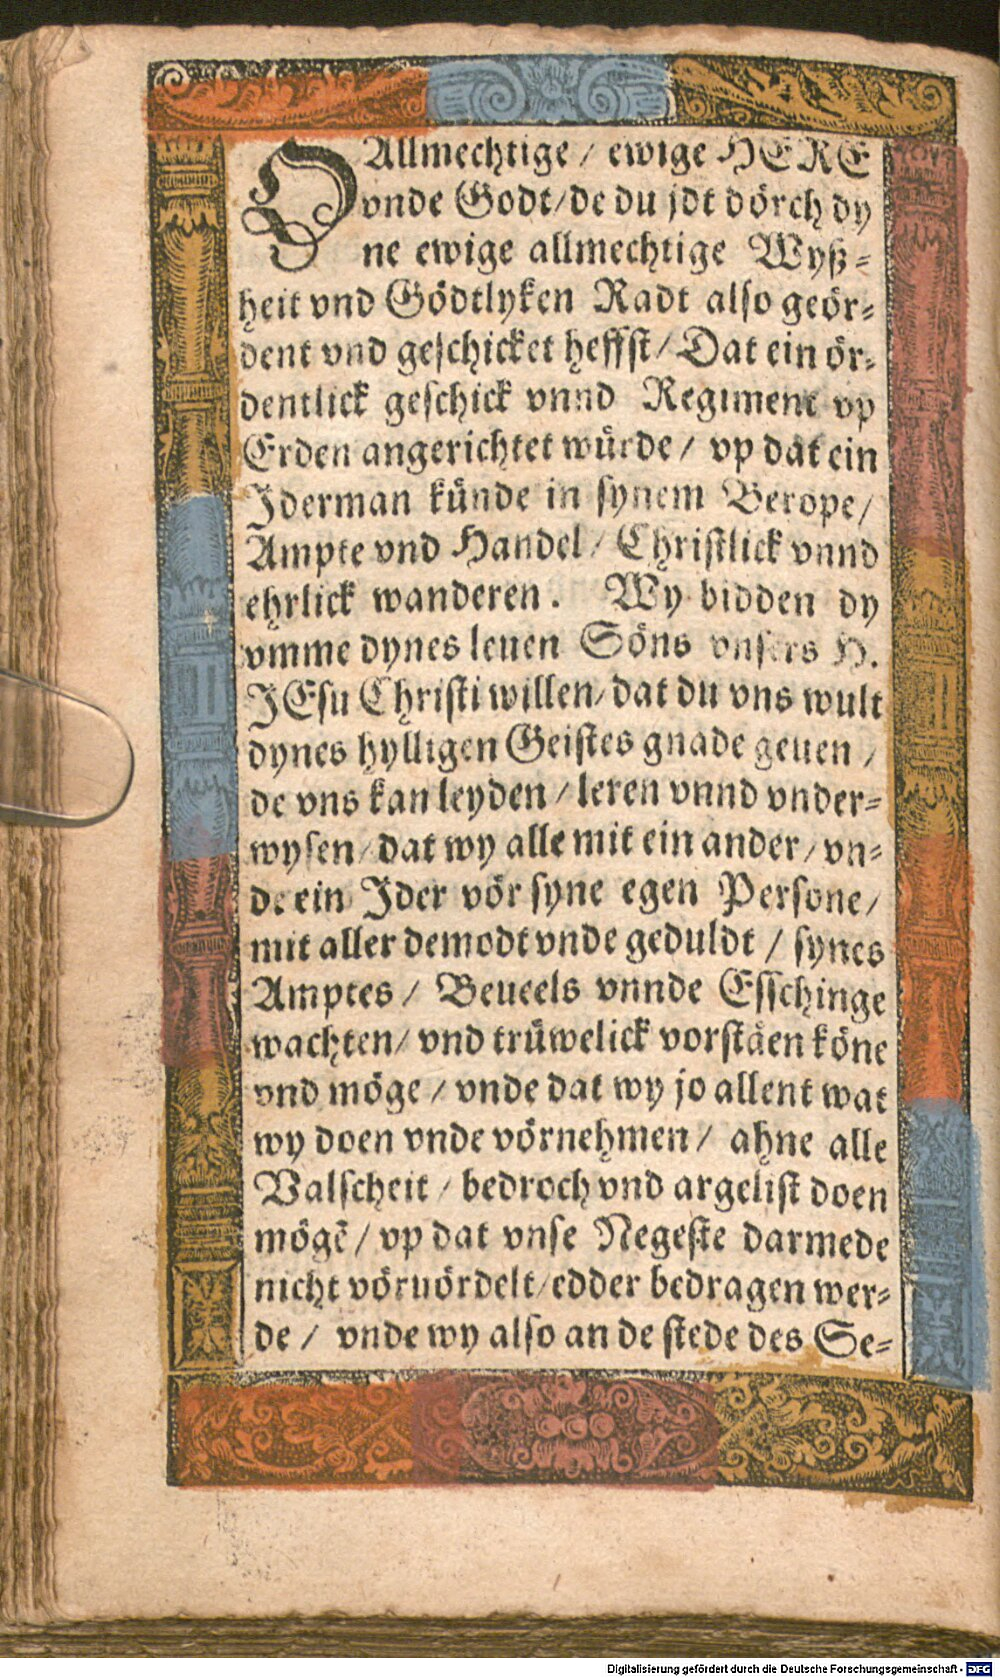 O Allmechtige / ewige HERE
vnde Godt / de du jdt dörch dy
ne ewige allmechtige Wyß=
heit vnd Gödtlyken Radt also geör=
dent vnd geschicket heffst / Dat ein ör=
dentlick geschick vnnd Regiment vp
Erden angerichtet würde / vp dat ein
Jderman künde in synem Berope /
Ampte vnd Handel / Christlick vnnd
ehrlick wanderen . Wy bidden dy
vmme dynes leuen Söns vnsers H.
JEsu Christi willen / dat du vns wult
dynes hylligen Geistes gnade geuen /
de vns kan leyden / leren vnnd vnder=
wysen / dat wy alle mit ein ander / vn=
de ein Jder vör syne egen Persone /
mit aller demodt vnde geduldt / synes
Amptes / Beueels vnnde Esschinge
wachten / vnd trüwelick vorstäen köne
vnd möge / vnde dat wy jo allent wat
wy doen vnde vörnehmen / ahne alle
Valscheit / bedroch vnd argelist doen
mögẽ / vp dat vnse Negeste darmede
nicht vöruördelt / edder bedragen wer=
de / vnde wy also an de stede des Se=
Digitalisierung gefördert durch die Deutsche Forschungsgemeinschaft - DFG